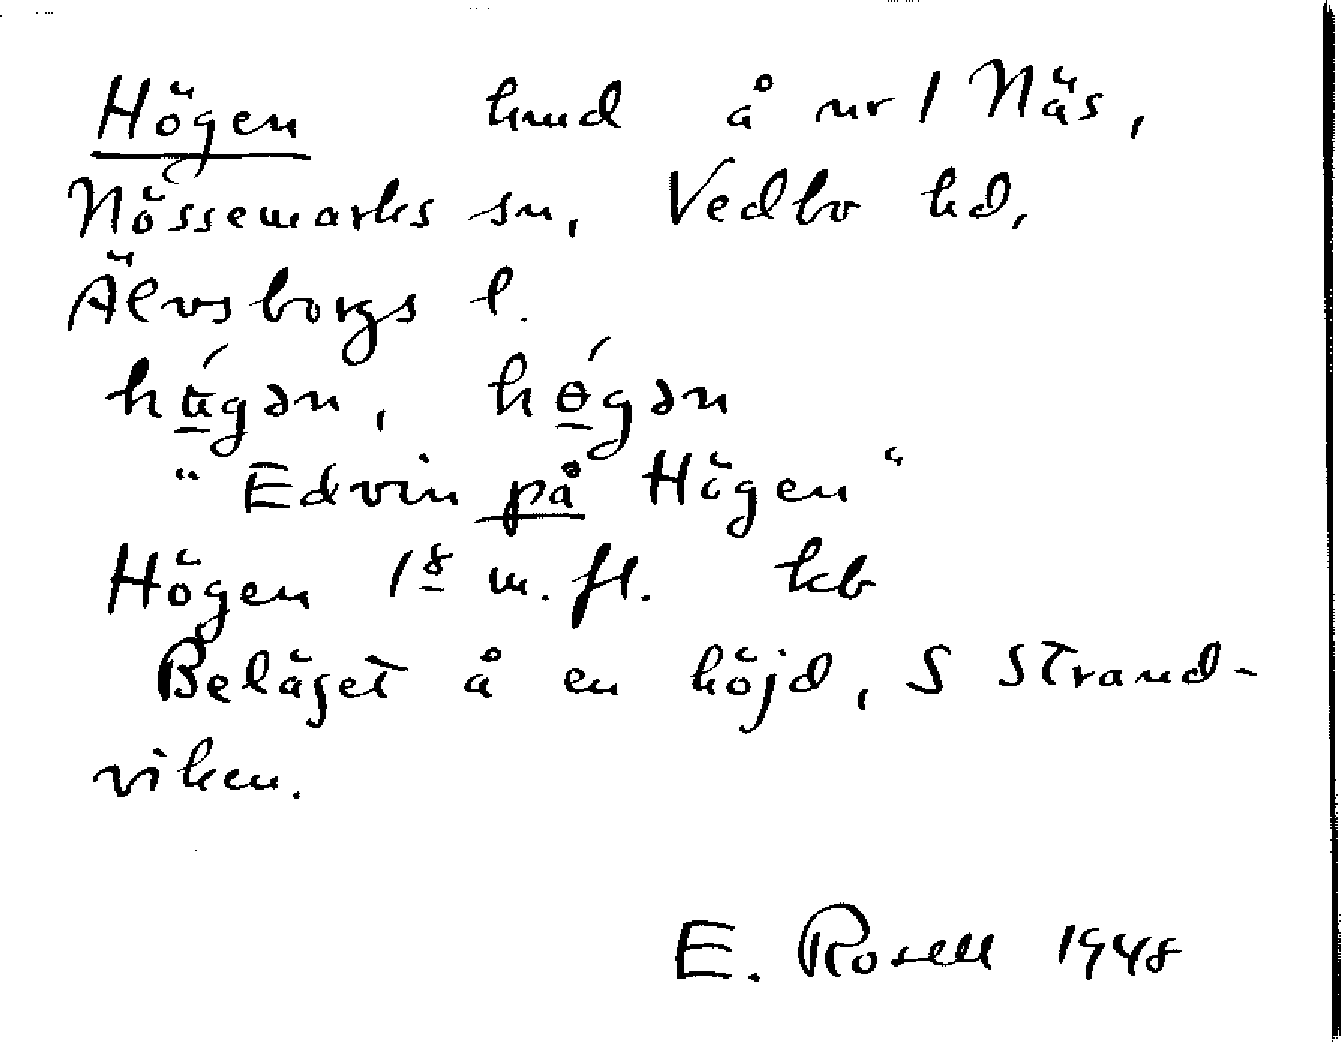 Högen hmd å nr 1 Näs,
Nössemarks sn, Vedbo hd,
Älvsborgs l.
hǿgən
"Edvin på Högen"
Högen 1⁸ m. fl. kb
Beläget å en höjd, S Strand-
viken.
E. Rosell 1948